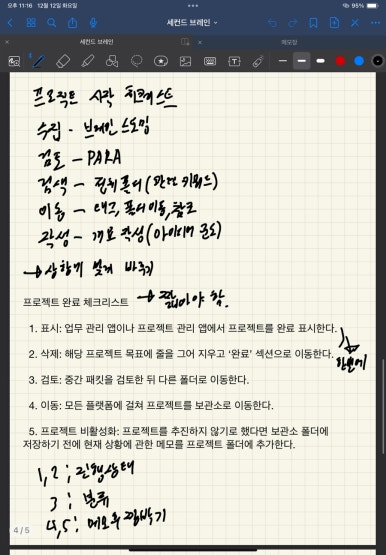 오후 11:16 12월 12일 화요일
95%
세컨드 브레인
세컨드 브레인
메모장
프로젝트 시작 체크리스트
수집 - 브레인 스토밍
검토 - PARA
검색 - 전체 폴더(관련 키워드)
이동 - 태그, 폴더이동, 참조
작성 - 개요 작성(아이디어 군도)
→ 상황에 맞게 바꾸기
프로젝트 완료 체크리스트 → 짧아야 함.
1. 표시: 업무 관리 앱이나 프로젝트 관리 앱에서 프로젝트를 완료 표시한다.
2. 삭제: 해당 프로젝트 목표에 줄을 그어 지우고 '완료' 섹션으로 이동한다.
한번에
3. 검토: 중간 패킷을 검토한 뒤 다른 폴더로 이동한다.
4. 이동: 모든 플랫폼에 걸쳐 프로젝트를 보관소로 이동한다.
5. 프로젝트 비활성화: 프로젝트를 추진하지 않기로 했다면 보관소 폴더에
저장하기 전에 현재 상황에 관한 메모를 프로젝트 폴더에 추가한다.
1, 2 ; 진행상태
3 ; 분류
4, 5 ; 메모와
4 / 5